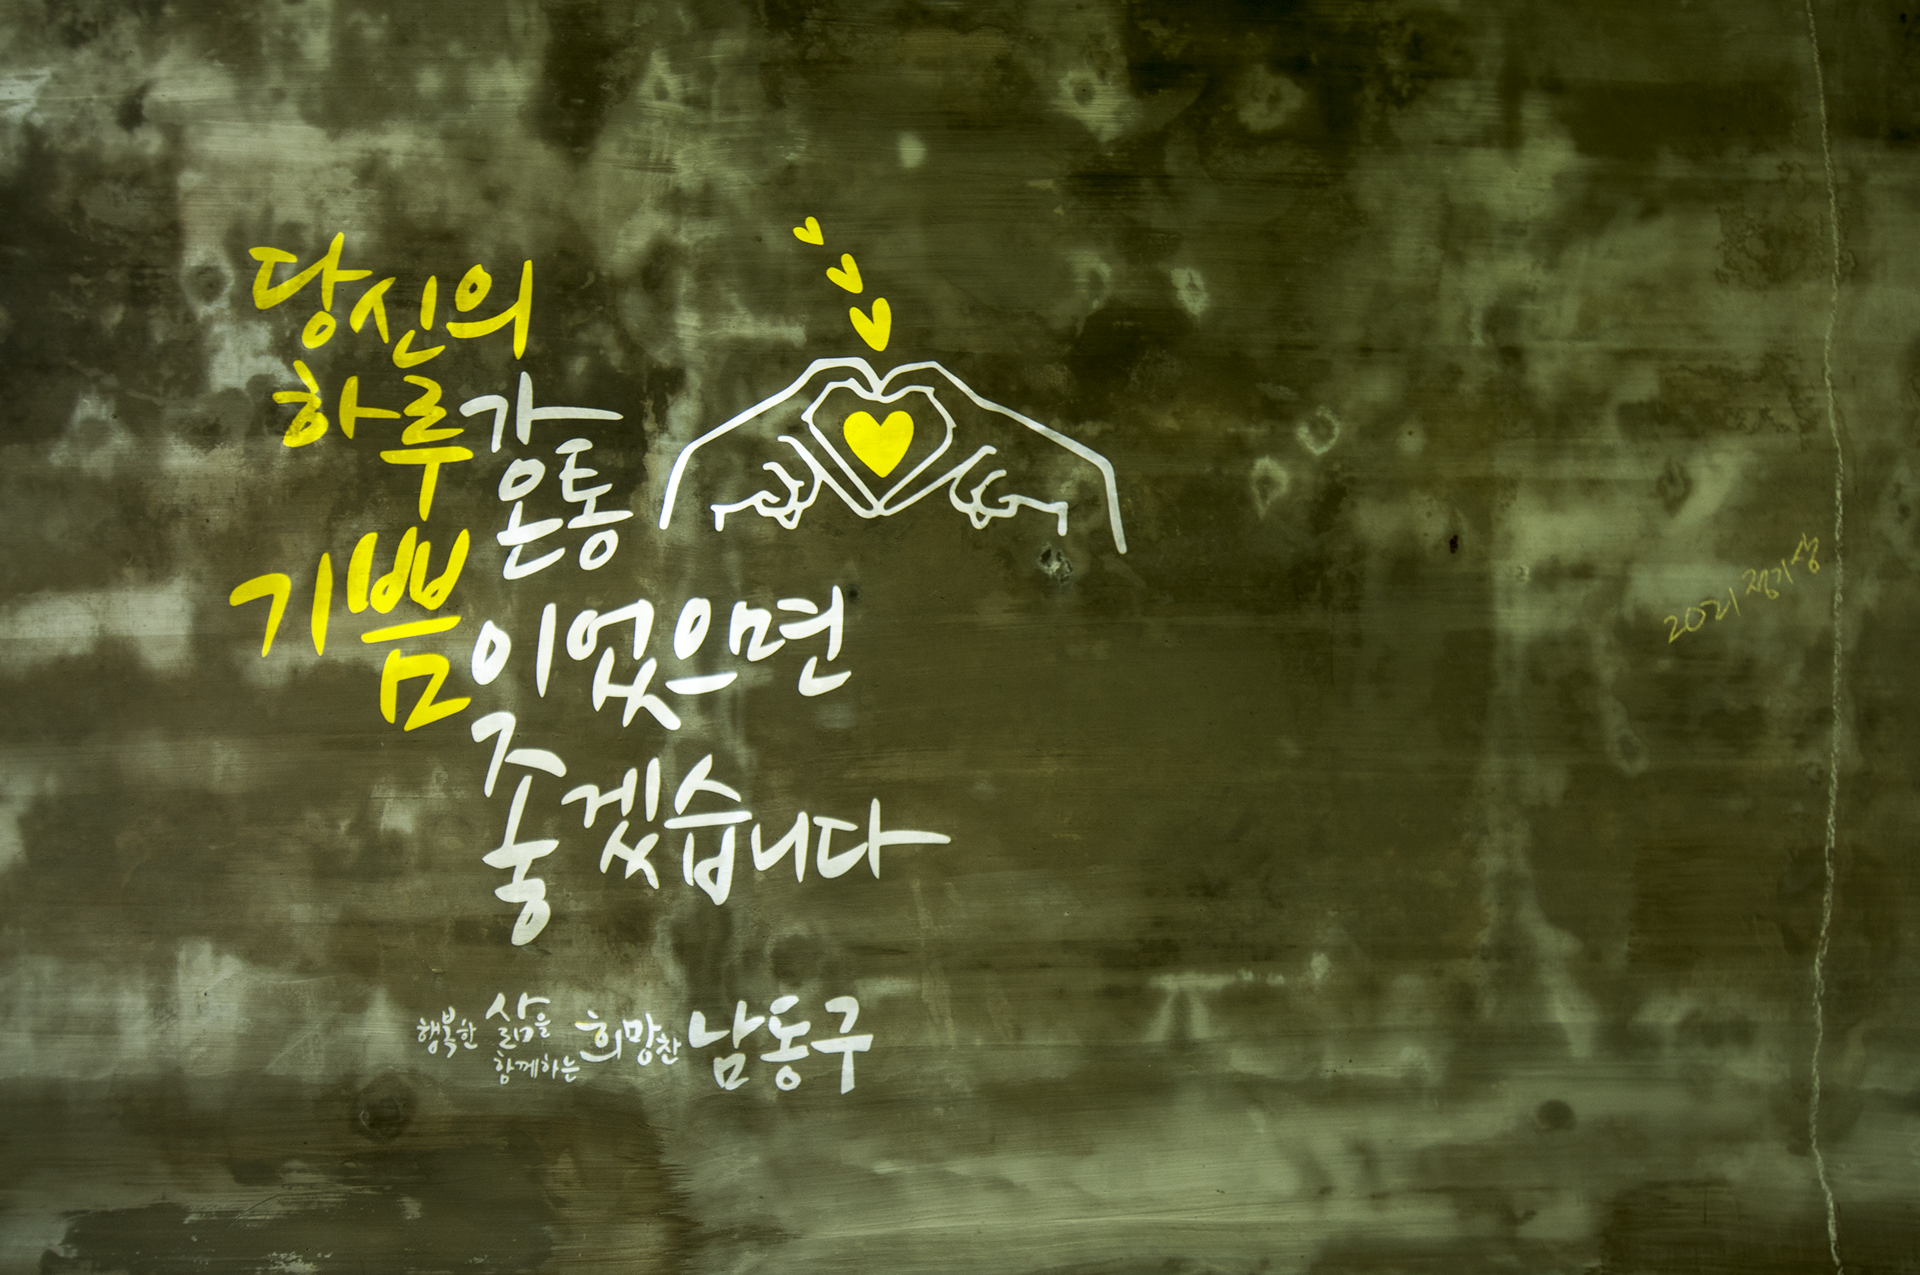 당신의
하루가
온통
기쁨이었으면
좋겠습니다
행복한 삶을
함께하는 희망찬 남동구
2021 정기상